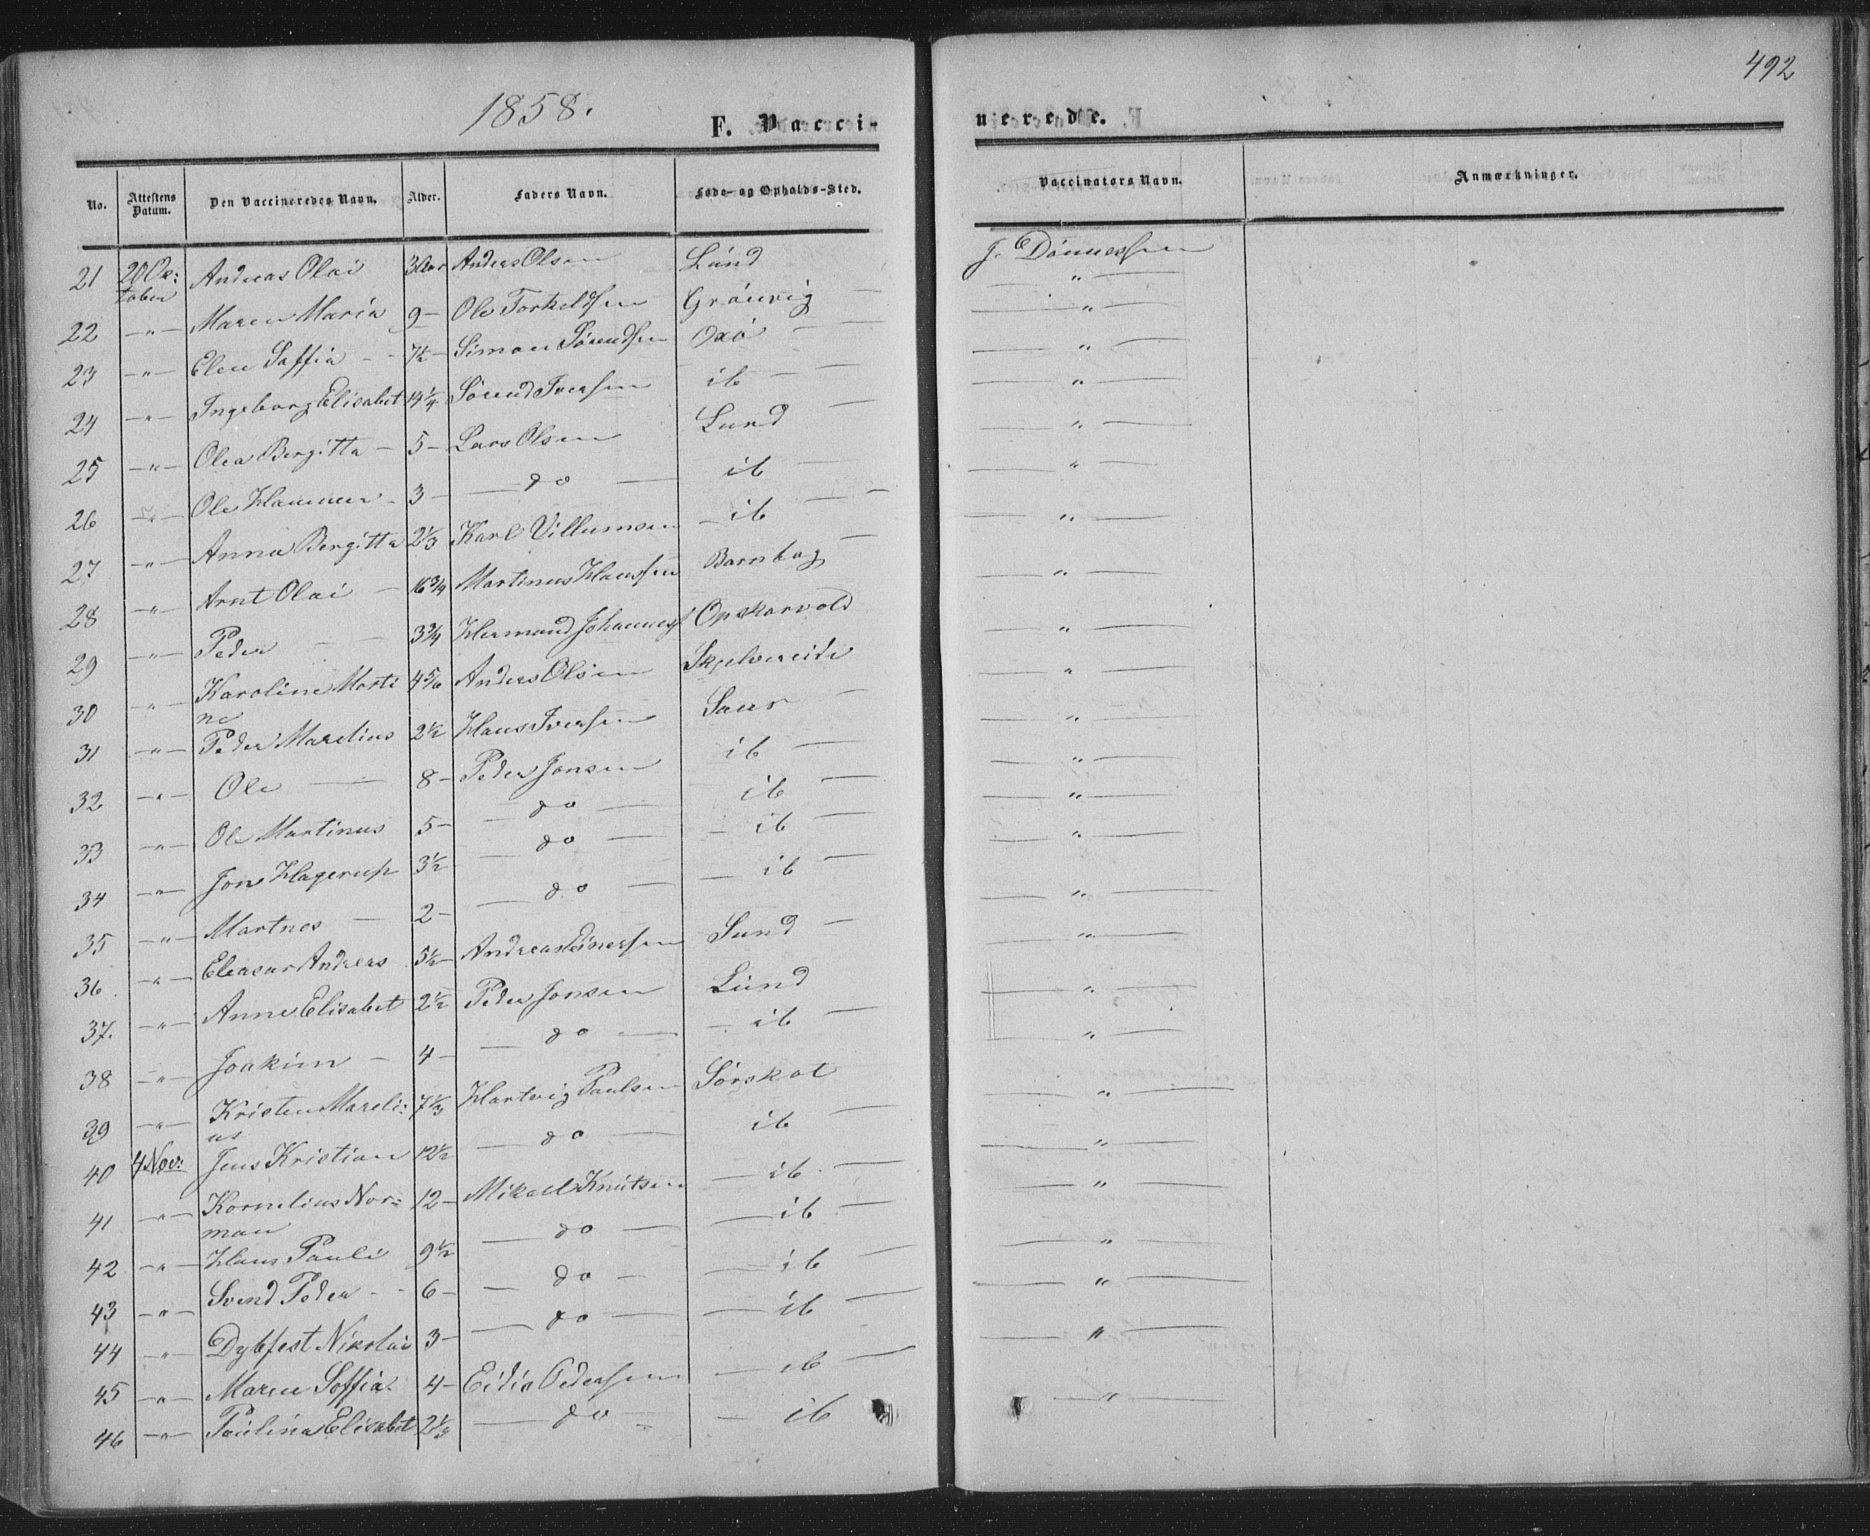 492
1858.
F. Vacci-
nerede.
No. Attestens Datum. Den Vaccineredes Navn. Alder. Faders Navn. Føde- og Opholds-Sted. Vaccinators Navn. Anmærkninger.
21 20 Oc: tober Andreas Olai 3 Aar Anders Olsen Lund J. Dönnessen
22 " Maren Maria 9 Ole Torkeldsen Grönvig "
23 " Elen Soffia 7½ Simon Sörendsen Oxö "
24 " Ingeborg Elisabet 14¼ Sörend Iversen ib "
25 " Olea Bergitta 5 Lars Olsen Lund "
26 " Ole Hammer 3 do ib "
27 " Anna Bergitta 2⅓ Karl Villumsen ib "
28 " Arnt Olai 16¾ Martinus Hanssen Barnhog "
29 " Peder 3¾ Hermand Johannes Opskarvold "
30 " Karoline Marti 4⅚ Anders Olsen Skjelvereide "
ne
31 " Peder Marelius 2½ Hans Iversen Saur "
32 " Ole 8 Peder Jonsen ib "
33 " Ole Martinus 5 do ib "
34 " Jons Hagerup 3½ do ib "
35 " Martnes 2 do ib "
36 " Eleasar Andreas 5½ Andreas Einersen Sund "
37. " Anne Elisabet 2½ Peder Jonsen Lund "
38 " Joakim 4 do ib "
39 " Kristen Mareli: 7⅓ Hartvig Paulsen Sörskot "
us
40 4 Nov: Jens Kristian 12½ do ib "
41 " Kornelius Nor= 12 Mikael Knutsen ib "
man
42 " Hans Pauli 9½ do ib "
43 " Svend Peder 6 do ib "
44 " Dybfest Nikolai 3 do ib "
45 " Maren Soffia 4 Eidis Pedersen ib "
46 " Paulina Elisabet 2⅓ do ib